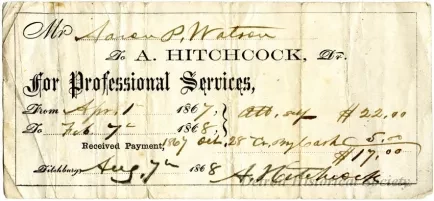 Mr Aaron P. Watson
To A. HITCHCOCK, Dr.
For Professional Services,
From Apr. 1 1867, } Att. $22.00
To Feb 7th 1868, }
Received Payment, 1867 Oct. 28 Cr. by cash 5.00
$17.00
Fitchburg Aug. 7th 1868 A. Hitchcock
Historical Society